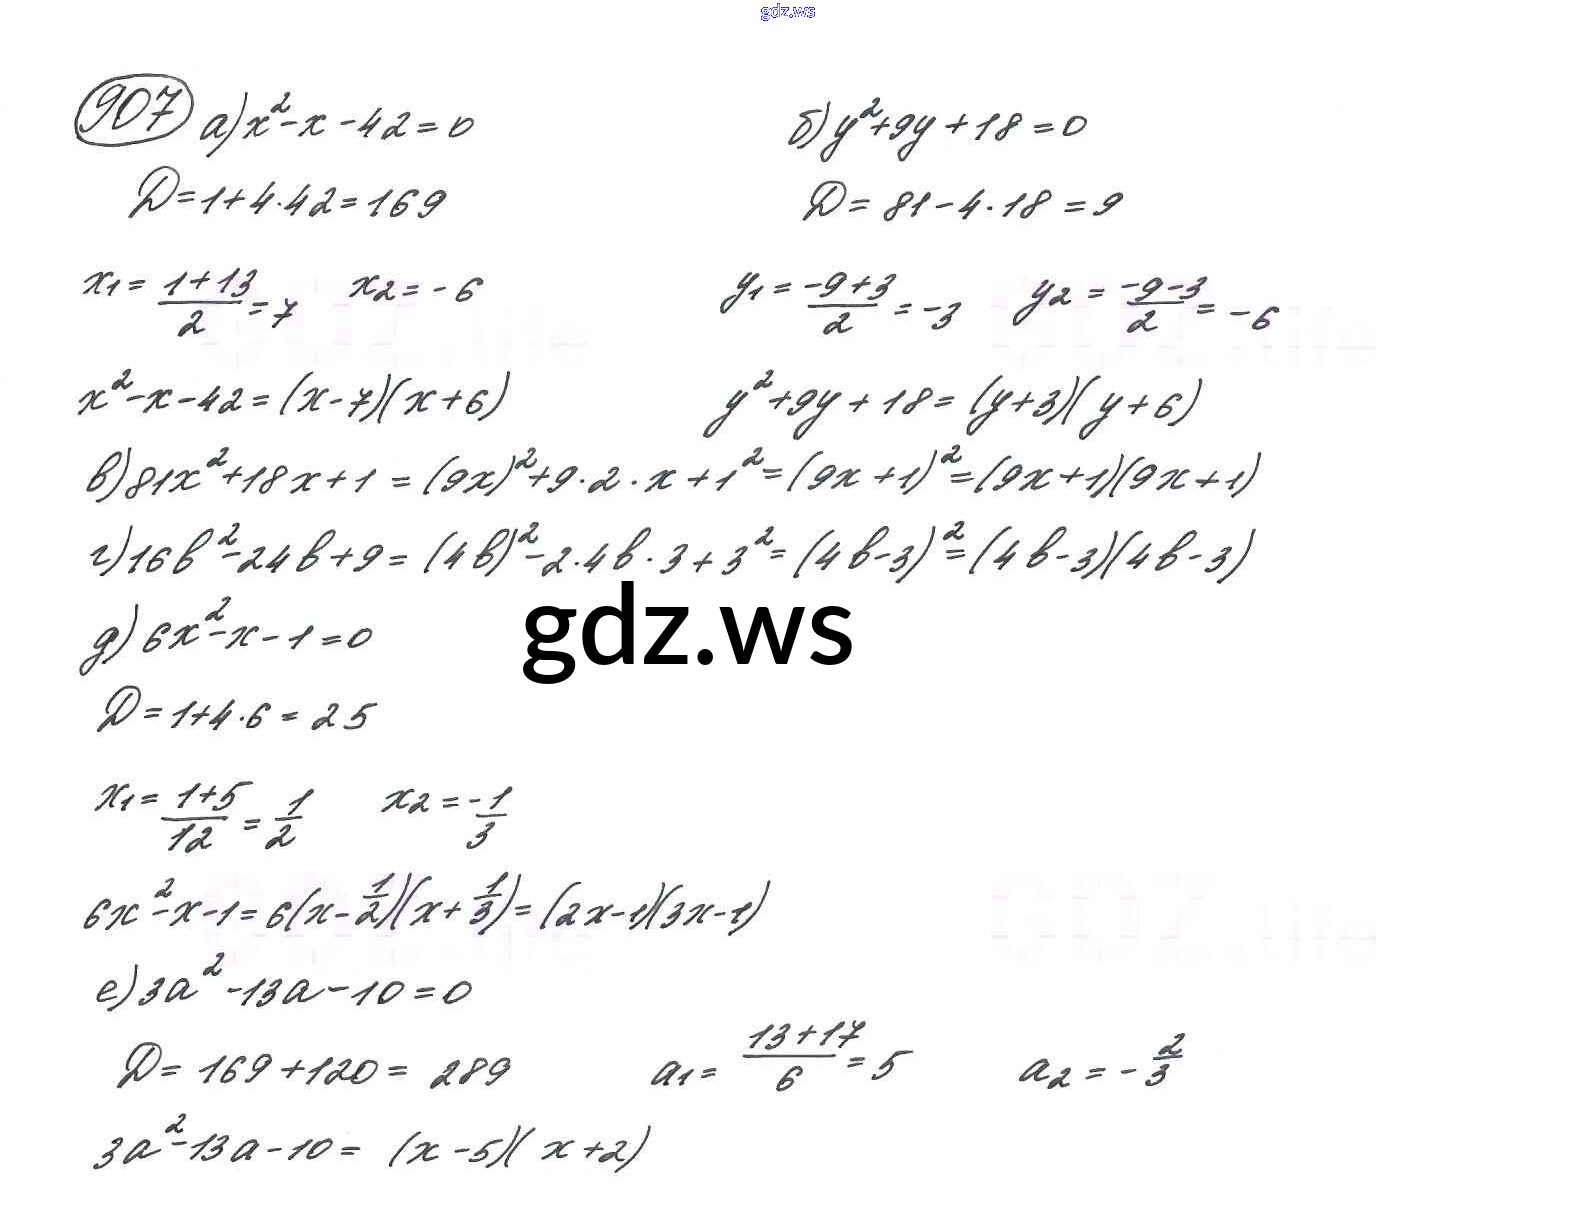 gdz.ws
907 а) x² - x - 42 = 0
D = 1 + 4·42 = 169
x₁ = (1+13)/2 = 7 x₂ = -6
x² - x - 42 = (x-7)(x+6)
б) y² + 9y + 18 = 0
D = 81 - 4·18 = 9
y₁ = (-9+3)/2 = -3 y₂ = (-9-3)/2 = -6
y² + 9y + 18 = (y+3)(y+6)
в) 81x² + 18x + 1 = (9x)² + 9·2·x + 1² = (9x+1)² = (9x+1)(9x+1)
г) 16b² - 24b + 9 = (4b)² - 2·4b·3 + 3² = (4b-3)² = (4b-3)(4b-3)
gdz.ws
д) 6x² - x - 1 = 0
D = 1 + 4·6 = 25
x₁ = (1+5)/12 = 1/2 x₂ = -1/3
6x² - x - 1 = 6(x - 1/2)(x + 1/3) = (2x-1)(3x-1)
е) 3a² - 13a - 10 = 0
D = 169 + 120 = 289 a₁ = (13+17)/6 = 5 a₂ = -2/3
3a² - 13a - 10 = (x-5)(x+2)